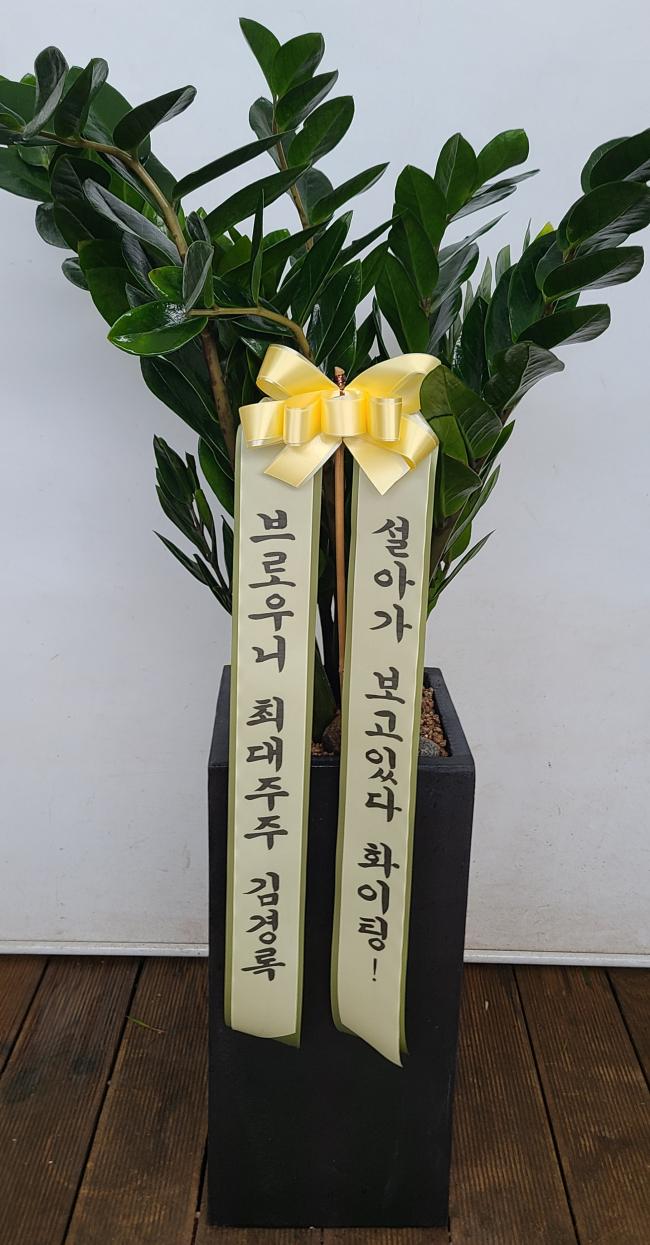 브로우니 최대주주 김경록
설아가 보고있다 화이팅!